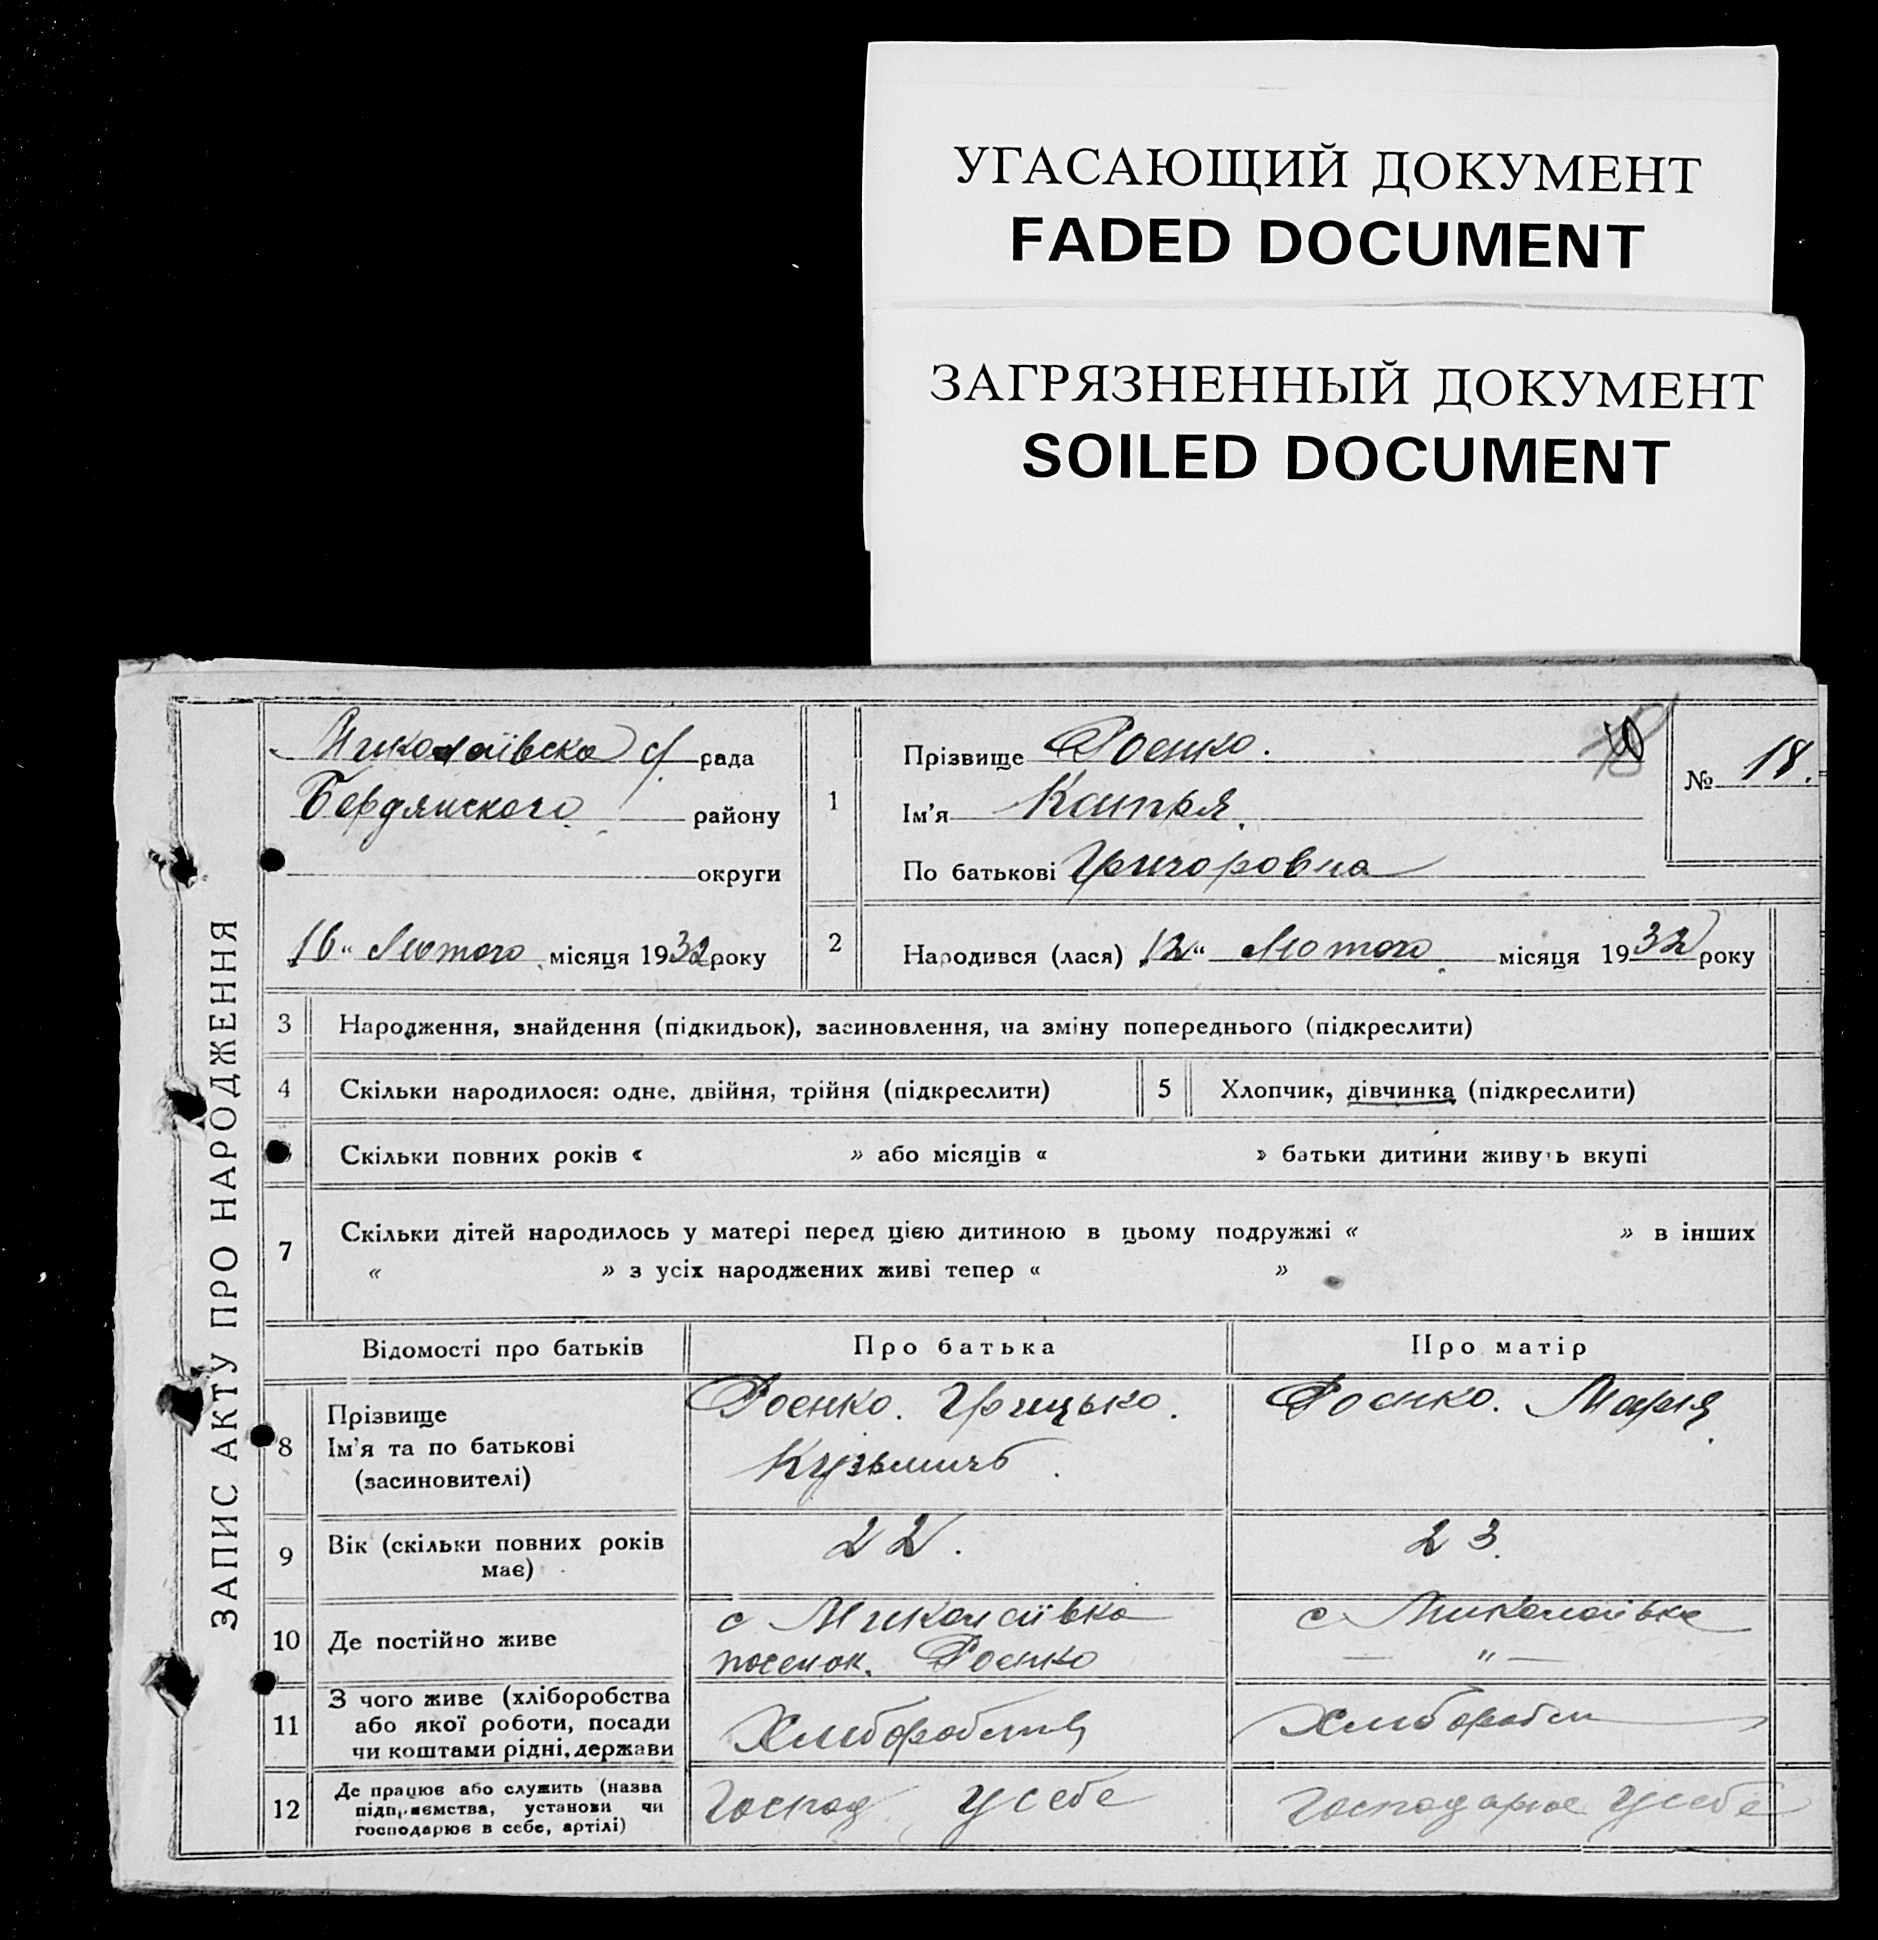 УГАСАЮЩИЙ ДОКУМЕНТ
FADED DOCUMENT
ЗАГРЯЗНЕННЫЙ ДОКУМЕНТ
SOILED DOCUMENT
ЗАПИС АКТУ ПРО НАРОДЖЕННЯ
Миколаївска с/ рада
Бердянского району
округи
16 „ Лютого місяця 1932 року
1
Прізвище Роенко.
Ім'я Катря.
По батькові Григоровна
№ 18.
2
Народився (лася) 12 „ Лютого місяця 1932 року
3 Народження, знайдення (підкидьок), засиновлення, на зміну попереднього (підкреслити)
4 Скільки народилося: одне, двійня, трійня (підкреслити)
5 Хлопчик, дівчинка (підкреслити)
Скільки повних років « » або місяців « » батьки дитини живуть вкупі
7 Скільки дітей народилось у матері перед цією дитиною в цьому подружжі « » в інших
« » з усіх народжених живі тепер « »
Відомості про батьків Про батька Про матір
8 Прізвище
Ім'я та по батькові
(засиновителі)
Роєнко. Грицько.
Кузьмичь.
Роєнко. Мария.
9 Вік (скільки повних років
має)
22.
23.
10 Де постійно живе
с Миколаївка
поселок. Роєнко
с Миколаївка
— „ —
11 З чого живе (хліборобства
або якої роботи, посади
чи коштами рідні, держави
12 Де працює або служить (назва
підприємства, установи чи
господарює в себе, артілі)
Господ усебе
Господарює усебе